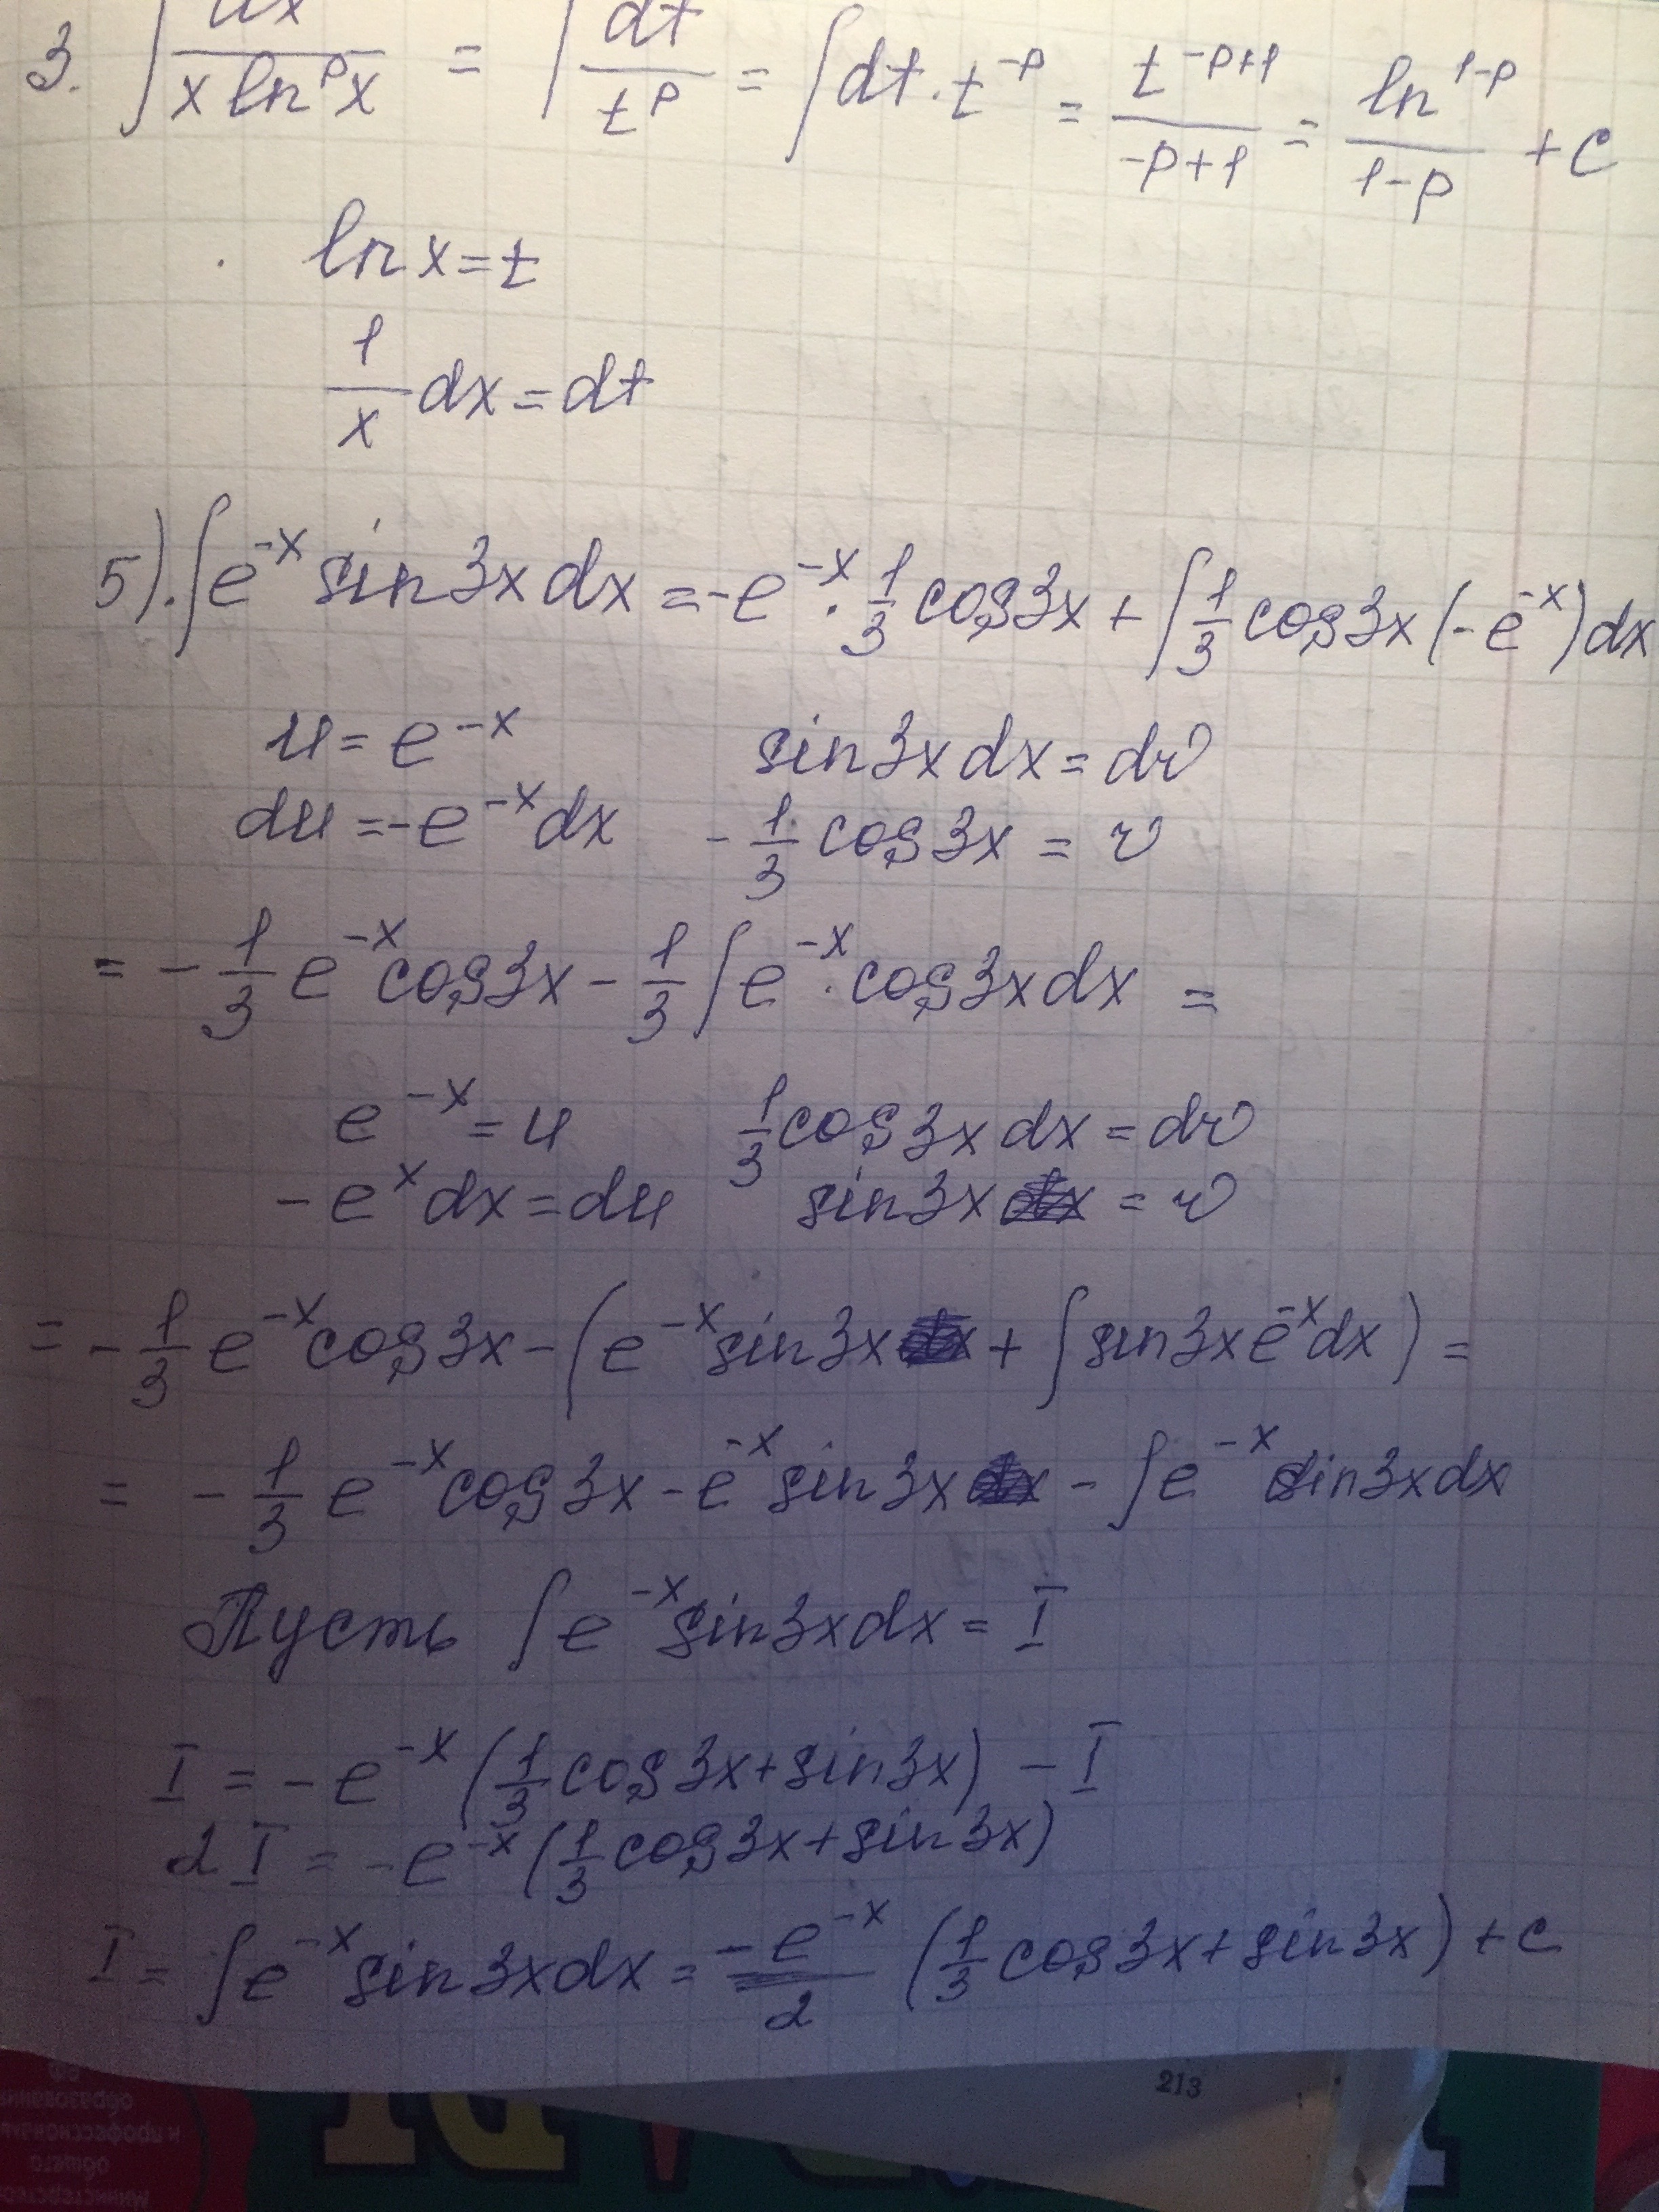 3. ∫ dx / (x ln^p x) = ∫ dt / t^p = ∫ dt · t^(-p) = t^(-p+1) / (-p+1) = ln^(1-p) / (1-p) + c
ln x = t
1/x dx = dt
5). ∫ e^(-x) sin3x dx = -e^(-x) · 1/3 cos3x + ∫ 1/3 cos3x (-e^(-x)) dx
u = e^(-x) sin3x dx = dv
du = -e^(-x) dx - 1/3 cos3x = v
= - 1/3 e^(-x) cos3x - 1/3 ∫ e^(-x) · cos3x dx =
e^(-x) = u 1/3 cos3x dx = dv
- e^x dx = du sin3x = v
= - 1/3 e^(-x) cos3x - (e^(-x) sin3x + ∫ sin3x e^(-x) dx) =
= - 1/3 e^(-x) cos3x - e^(-x) sin3x - ∫ e^(-x) sin3x dx
Пусть ∫ e^(-x) sin3x dx = I
I = - e^(-x) (1/3 cos3x + sin3x) - I
2I = - e^(-x) (1/3 cos3x + sin3x)
I = ∫ e^(-x) sin3x dx = -e^(-x) / 2 (1/3 cos3x + sin3x) + c
213
образования
и профессионал
общего
министерство